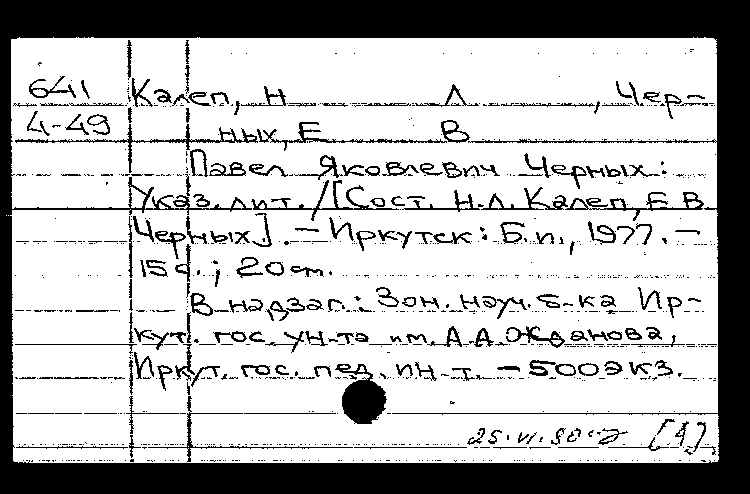 641 Калеп, Н Л , Чер-
4-49 ных, Е В
Павел Яковлевич Черных:
Указ. лит. /[Сост. Н.Л. Калеп, Е.В.
Черных]. – Иркутск: Б.и., 1977. –
15 с.; 20 см.
В надзаг.: Зон. науч. б-ка Ир-
кут. гос. ун-та им. А.А. Жданова,
Иркут. гос. пед. ин-т. – 500 экз.
25.VI.80 [1]